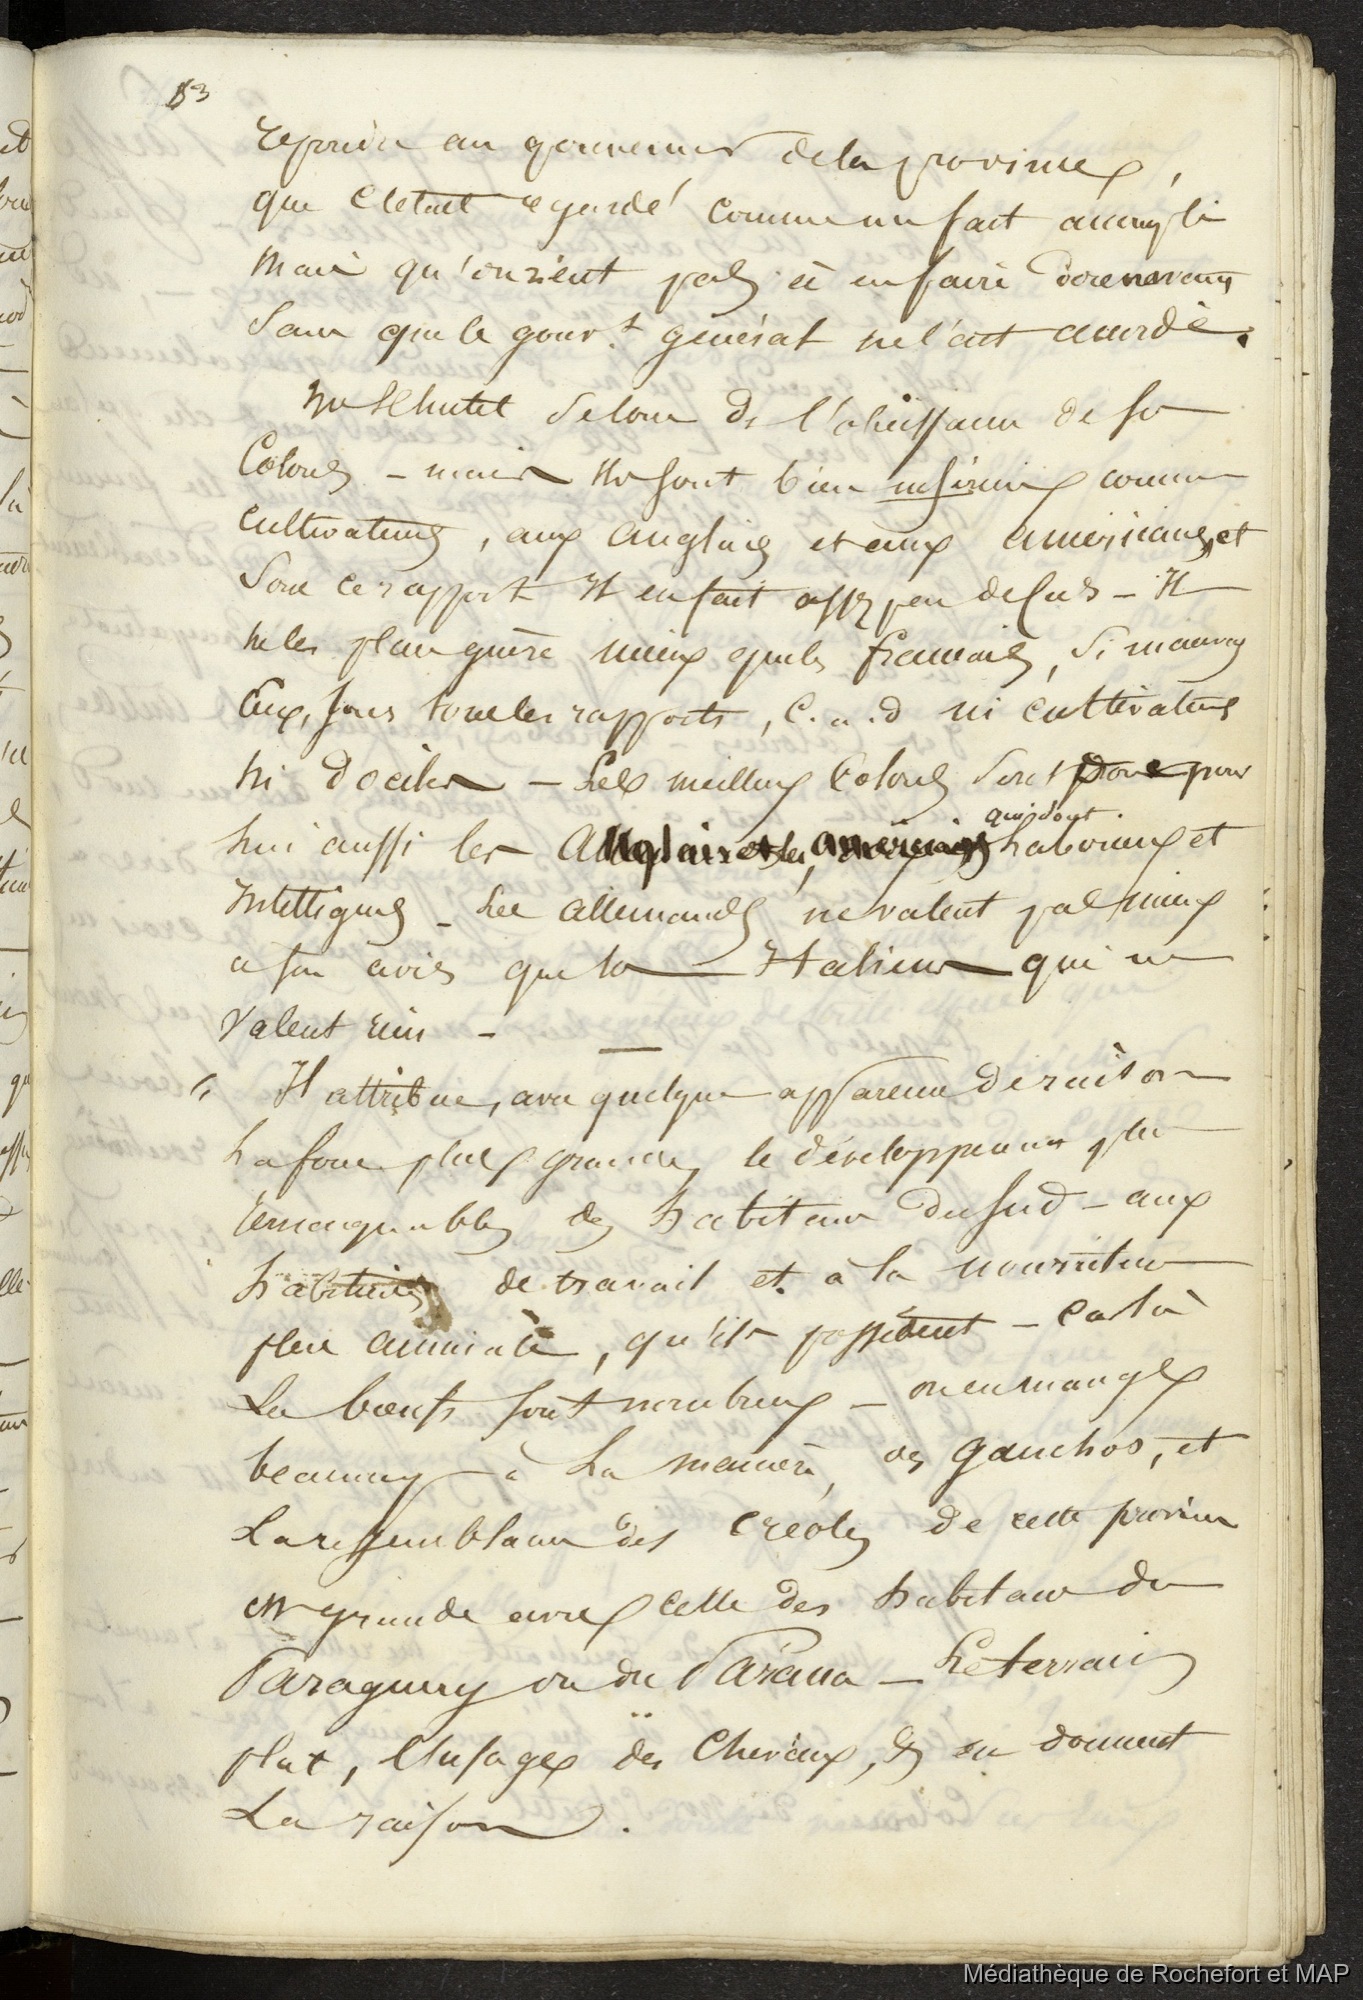 53
repondu au gouverneur de la province,
que c'etait regardé comme un fait accompli
mais qu'on n'eut pas à en faire dorenavant
sans que le gouvt. général ne l'ait accordé.
Mr Schutel se loue de l'obéissance de ses
Colons – mais ils sont bien inférieurs comme
cultivateurs, aux anglais et aux américains, et
sous ce rapport il en fait assez peu de cas – Il
ne les place guère mieux que les français, si mauvais
eux, sous tous les rapports, c. a. d ni cultivateurs
ni dociles – Les meilleurs Colons sont donc pour
lui aussi les Anglais et les américains qui sont laborieux et
intelligens – Les allemands ne valent pas mieux
a son avis que les Italiens qui ne
valent rien –
" Il attribue, avec quelque apparence de raison
la force plus grande, le développement plus
remarquable des habitans du sud – aux
habitudes de travail et à la nourriture
plus animale, qu'ils possèdent – car là
Les bœufs sont nombreux – on en mange
beaucoup à la manière des gauchos, et
La ressemblance des créoles de cette province
est grande avec celle des habitans du
Paraguay ou du Parana – Le terrain
plat, l'usage des chevaux, en donnent
La raison.
Médiathèque de Rochefort et MAP